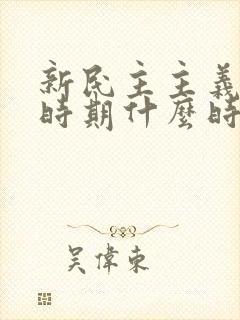 新民主主義
時期什麼時
吳偉東